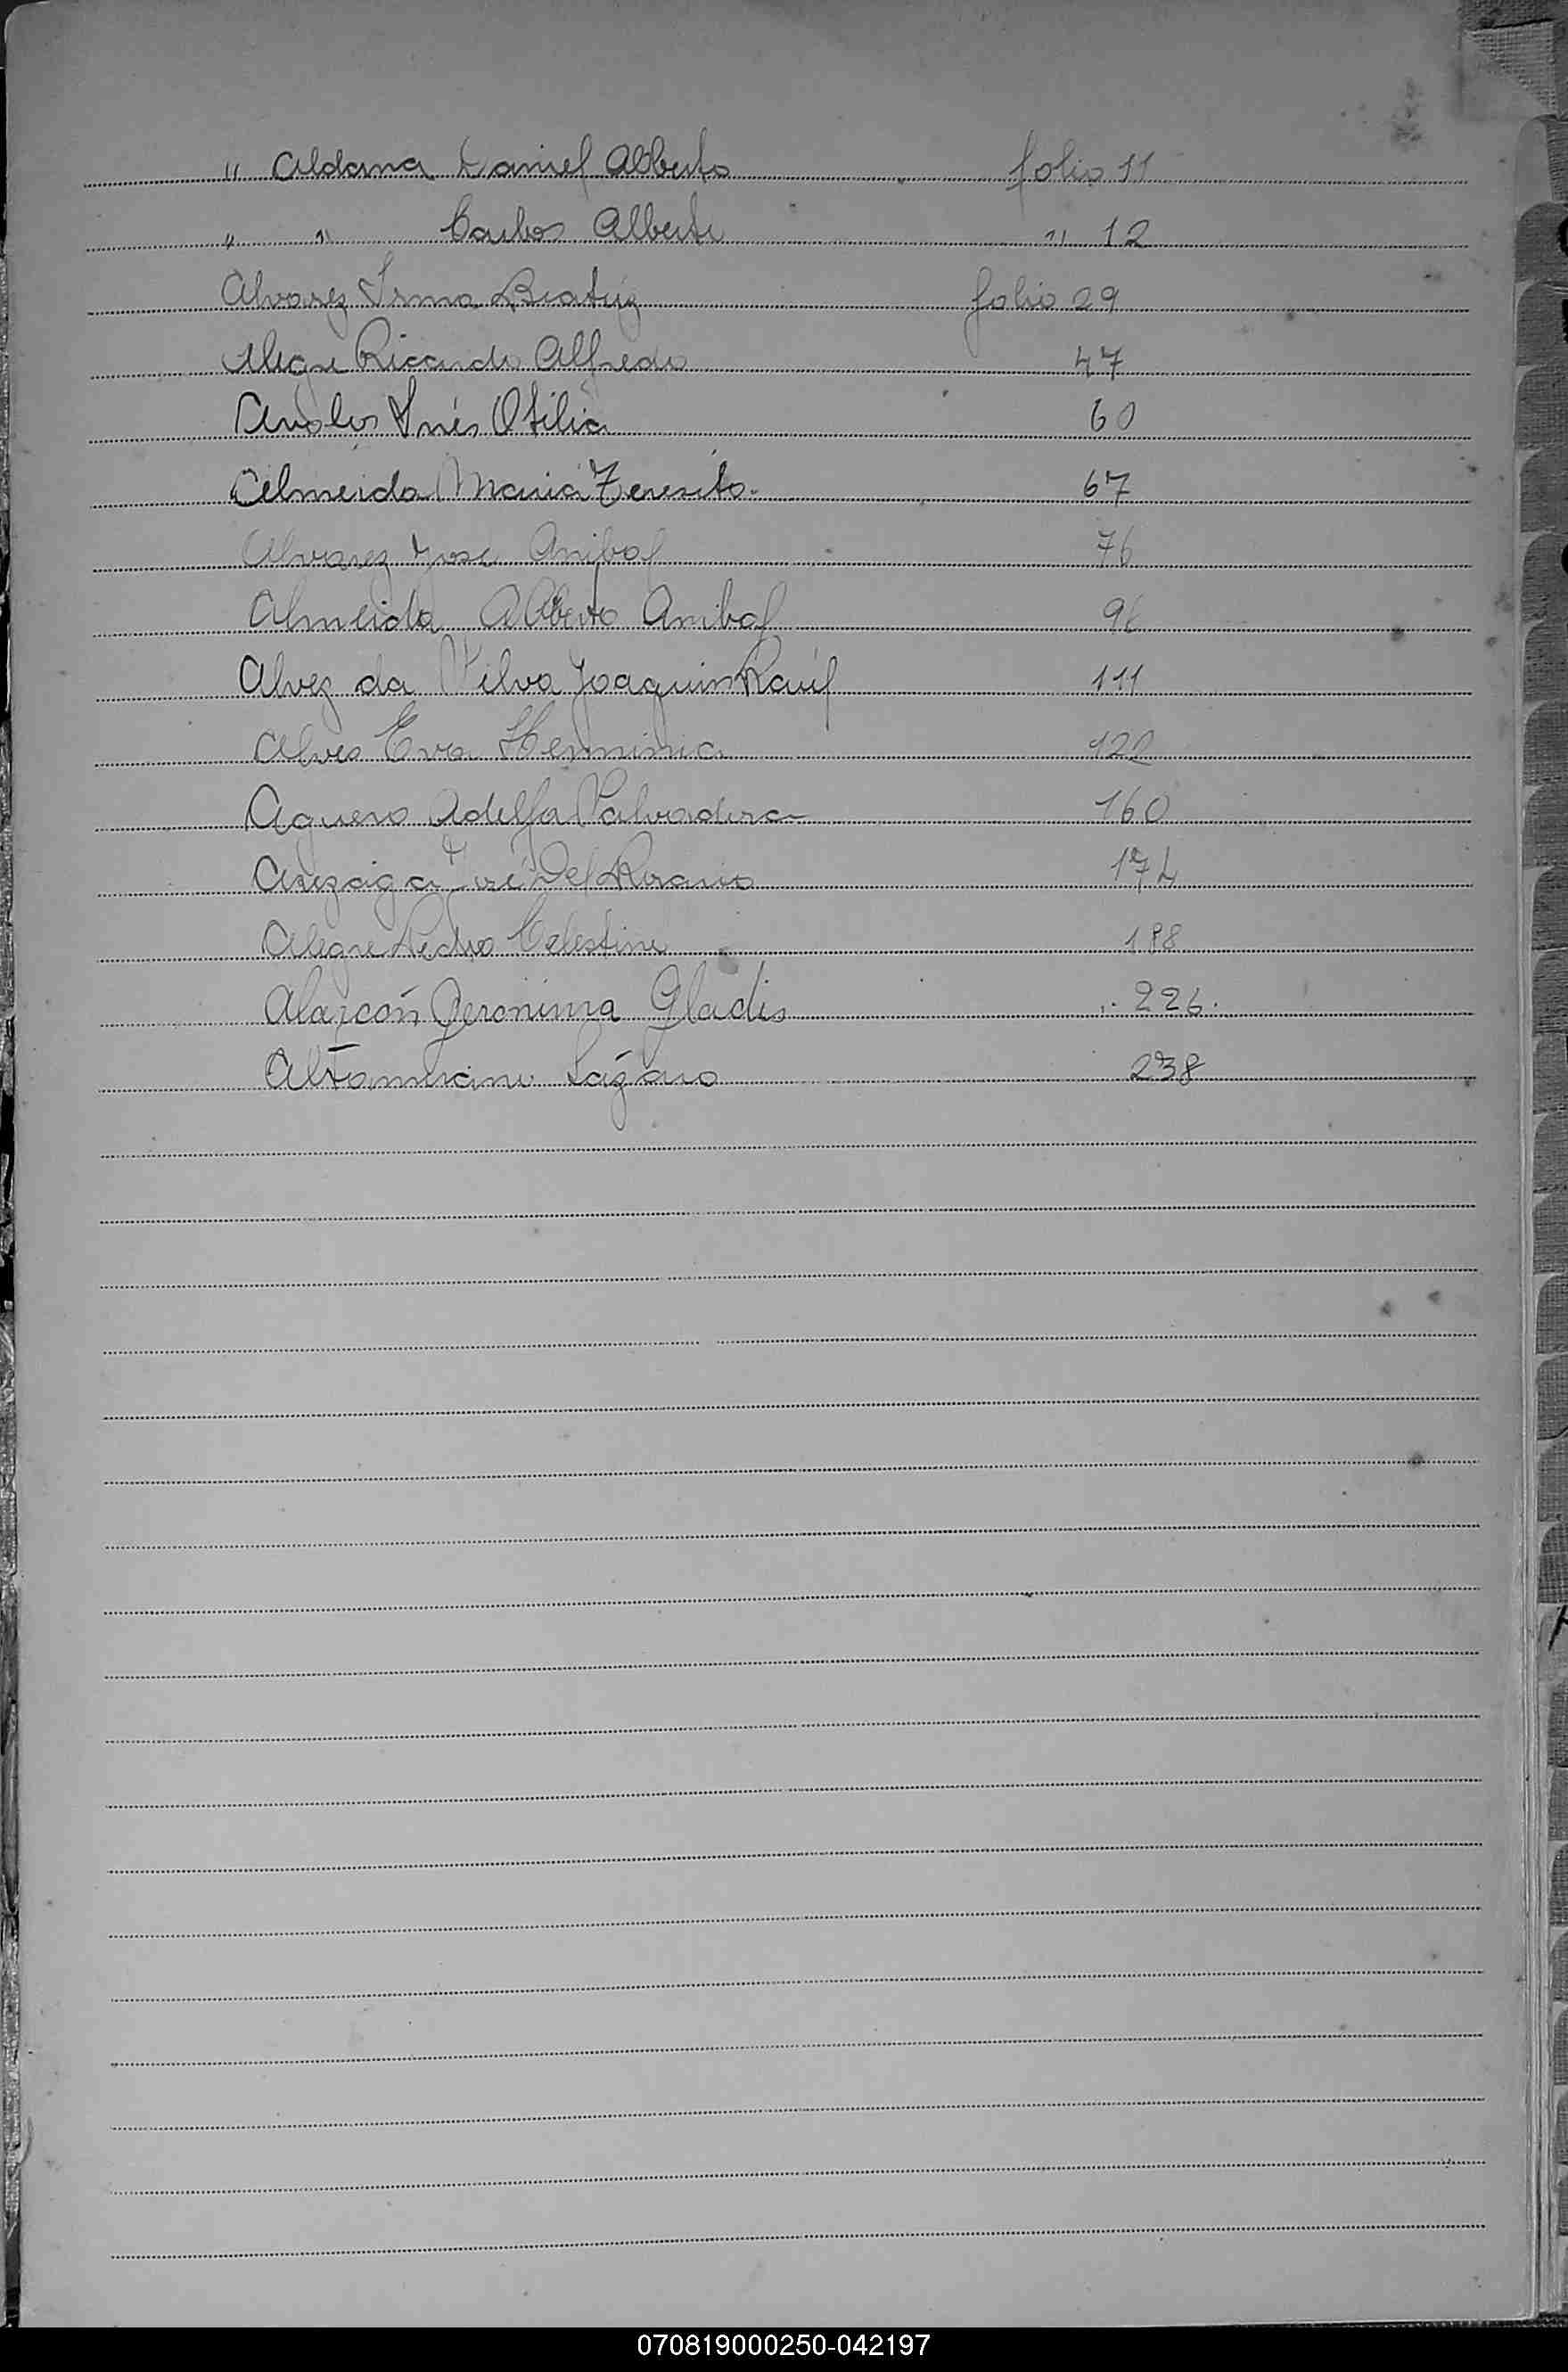 " Aldana Daniel Alberto folio 11
" " Carlos Alberto " 12
Alvarez Irma Beatriz folio 29
Alegre Ricardo Alfredo 47
Avalos Inés Otilia 60
Almeida Maria Teresita. 67
Alvarez José Anibal 76
Almeida Alberto Anibal 96
Alvez da Silva Joaquin Raúl 111
Alves Eva Herminia 122
Aguero Adelfa Salvadora 160
José Del Rosario 174
Alegre Pedro Celestino 188
Alarcón Geronima Gladis " 226.
Altamirano Lázaro 238
070819000250-042197